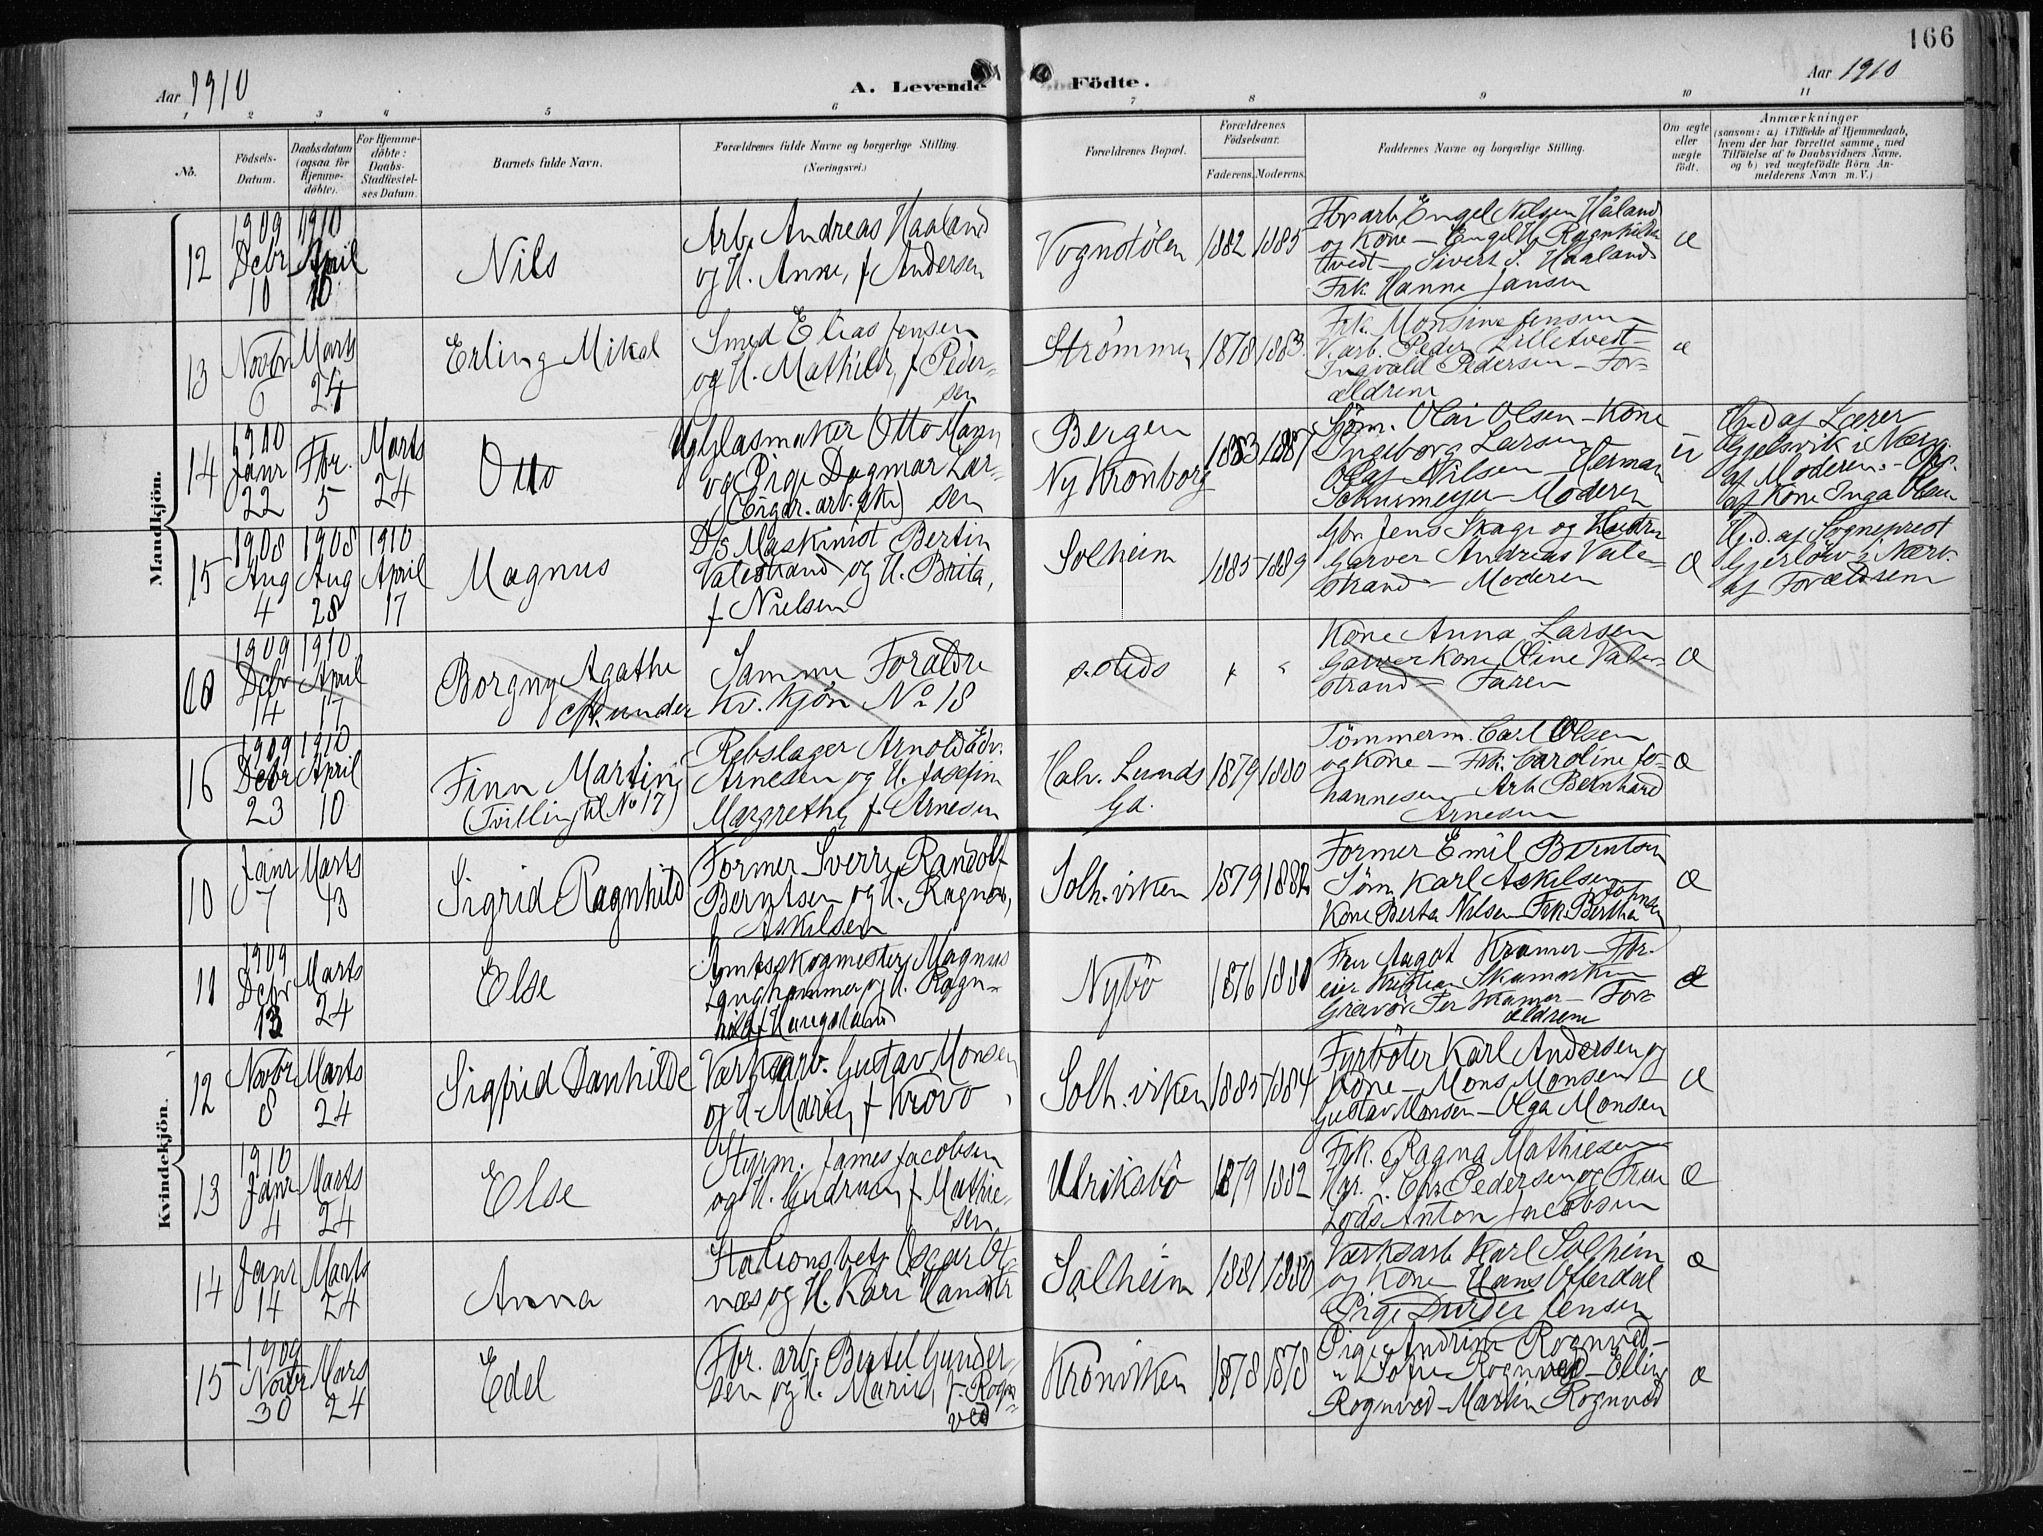 166
Aar 1910
A. Levende Födte.
Aar 1910
1 2 3 4 5 6 7 8 9 10 11
No.
Födsels-Datum.
Daabsdatum (ogsaa for Hjemmedöbte).
For Hjemmedöbte: Daabs-Stadfæstelses Datum.
Barnets fulde Navn.
Forældrenes fulde Navne og borgerlige Stilling.
(Næringsvei.)
Forældrenes Bopæl.
Forældrenes Födselsaar.
Faderens. Moderens.
Faddernes Navne og borgerlige Stilling.
Om ægte eller uægte födt.
Anmærkninger
(saasom: a) i Tilfælde af Hjemmedaab,
hvem der har forrettet samme, med
Tilföielse af to Daabsvidners Navne,
og b) ved uægtefödte Börn Anmelderens Navn m. V.)
Mandkjön.
12
1909 Debr 10
1910 April 10
Nils
Arb. Andreas Haaland
og H. Anne, f Andersen
Vognstölen
1882 1885
Fbrarb Engel Nilsen Håland
og Kone – Engel H. Ragnhilds
tvedt – Sivert S. Haaland
Frk. Hanne Jansen
æ
13
Novbr 6
Marts 24
Erling Mikal
Smed Elias Jensen
og H. Mathilde, f Peder-
sen
Strømmen
1878 1883
Frk. Monsine Jensen
Varb. Peder Lilletvett –
Ingvald Pedersen – For-
ældrene
æ
14
1910 Janr 22
Fbr. 5
Marts 24
Otto
Ug Glasmaker Otto Mann
og Pige Dagmar Lar-
(Eigdr. arb.ske) sen
Bergen
Ny Kronborg
1883 1887
Sjöm. Olai Olsen – Kone
Ingeborg Larsen
Olaf Nilsen – Herman
Schurmeyer – Moderen
u
H.D af Lærer
Gjelsvik i Nærv.
af Moderen –
af Kone Inga Olsen
15
1908 Aug 4
1908 Aug 28
1910 April 17
Magnus
D/s Maskinist Bertin
Valestrand og H. Brita,
f Nielsen
Solheim
1885 1889
Gbr. Jens Skage og Hustru
Garver Andreas Vale-
strand – Moderen
æ
H.D. af Sogneprest
Gjerløw i Nærv.
af Forældrene
1909 Debr 14
1910 April 17
Borgny Agathe
under
Samme Forældre
Kv. Kjön No 18
s. steds
Kone Anna Larsen
Garverkone Oline Vale-
strand – Faren
æ
16
1909 Debr 23
1910 April 10
Finn Martin
(Tvilling til No 17)
Rebslager Arnold Edv.
Arnesen og H. Josefine
Margrethe, f. Arnesen
Halv. Lunds
Gd.
1879 1880
Tömmerm. Carl Olsen
og Kone – Frk. Caroline Jo-
hannesen Arb. Bernhard
Arnesen
æ
Kvindekjön.
10
Janr 7
Marts 13
Sigrid Ragnhild
Former Sverre Randolf
Berntsen og H. Ragna,
f Askilsen
Solh.viken
1879 1882
Former Emil Berntsen
Söm. Karl Askilsen
Kone Berta Nilsen – Frk. Bertha Johnsen
æ
11
1909 Debr 13
Marts 24
Else
Amtsskogmester Magnus
Langhammer og H. Ragn-
hild f Haugsland
Nybö
1876 1880
Fru Aagot Kramer – For.
eier Kristian Skamarken
Gravör Per Kramer – For-
ældrene
æ
12
Novbr 8
Marts 24
Sigfrid Danhilde
Værksarb. Gustav Monsen
og H. Marie, f Krovo
Solh.viken
1885 1884
Fyrböter Karl Andersen og
Kone – Mons Monsen –
Gustav Monsen – Olga Monsen
æ
13
1910 Janr 4
Marts 24
Else
Styrm. James Jacobsen
og H. Gudrun, f Mathie-
sen
Ulriksbö
1879 1882
Frk. Ragna Mathiesen
Hr. S. Chr. Pedersen og Frue
Lods Anton Jacobsen
æ
14
Janr 14
Marts 24
Anna
Stationsbetj. Oscar Ot-
næs og H. Kari Hansdtr
Solheim
1881 1880
Værksarb Karl Solheim
og Kone Hans Offerdal
Pige Durdei Jensen
æ
15
1909 Novbr 30
Mars 24
Edel
Fbr. arb. Bertel Gunder-
sen og H. Marie, f. Rogn-
ved
Kronviken
1878 1878
Pige Andrine Rognved –
" Sofie Rognved – Elling
Rognved – Martin Rognved
æ